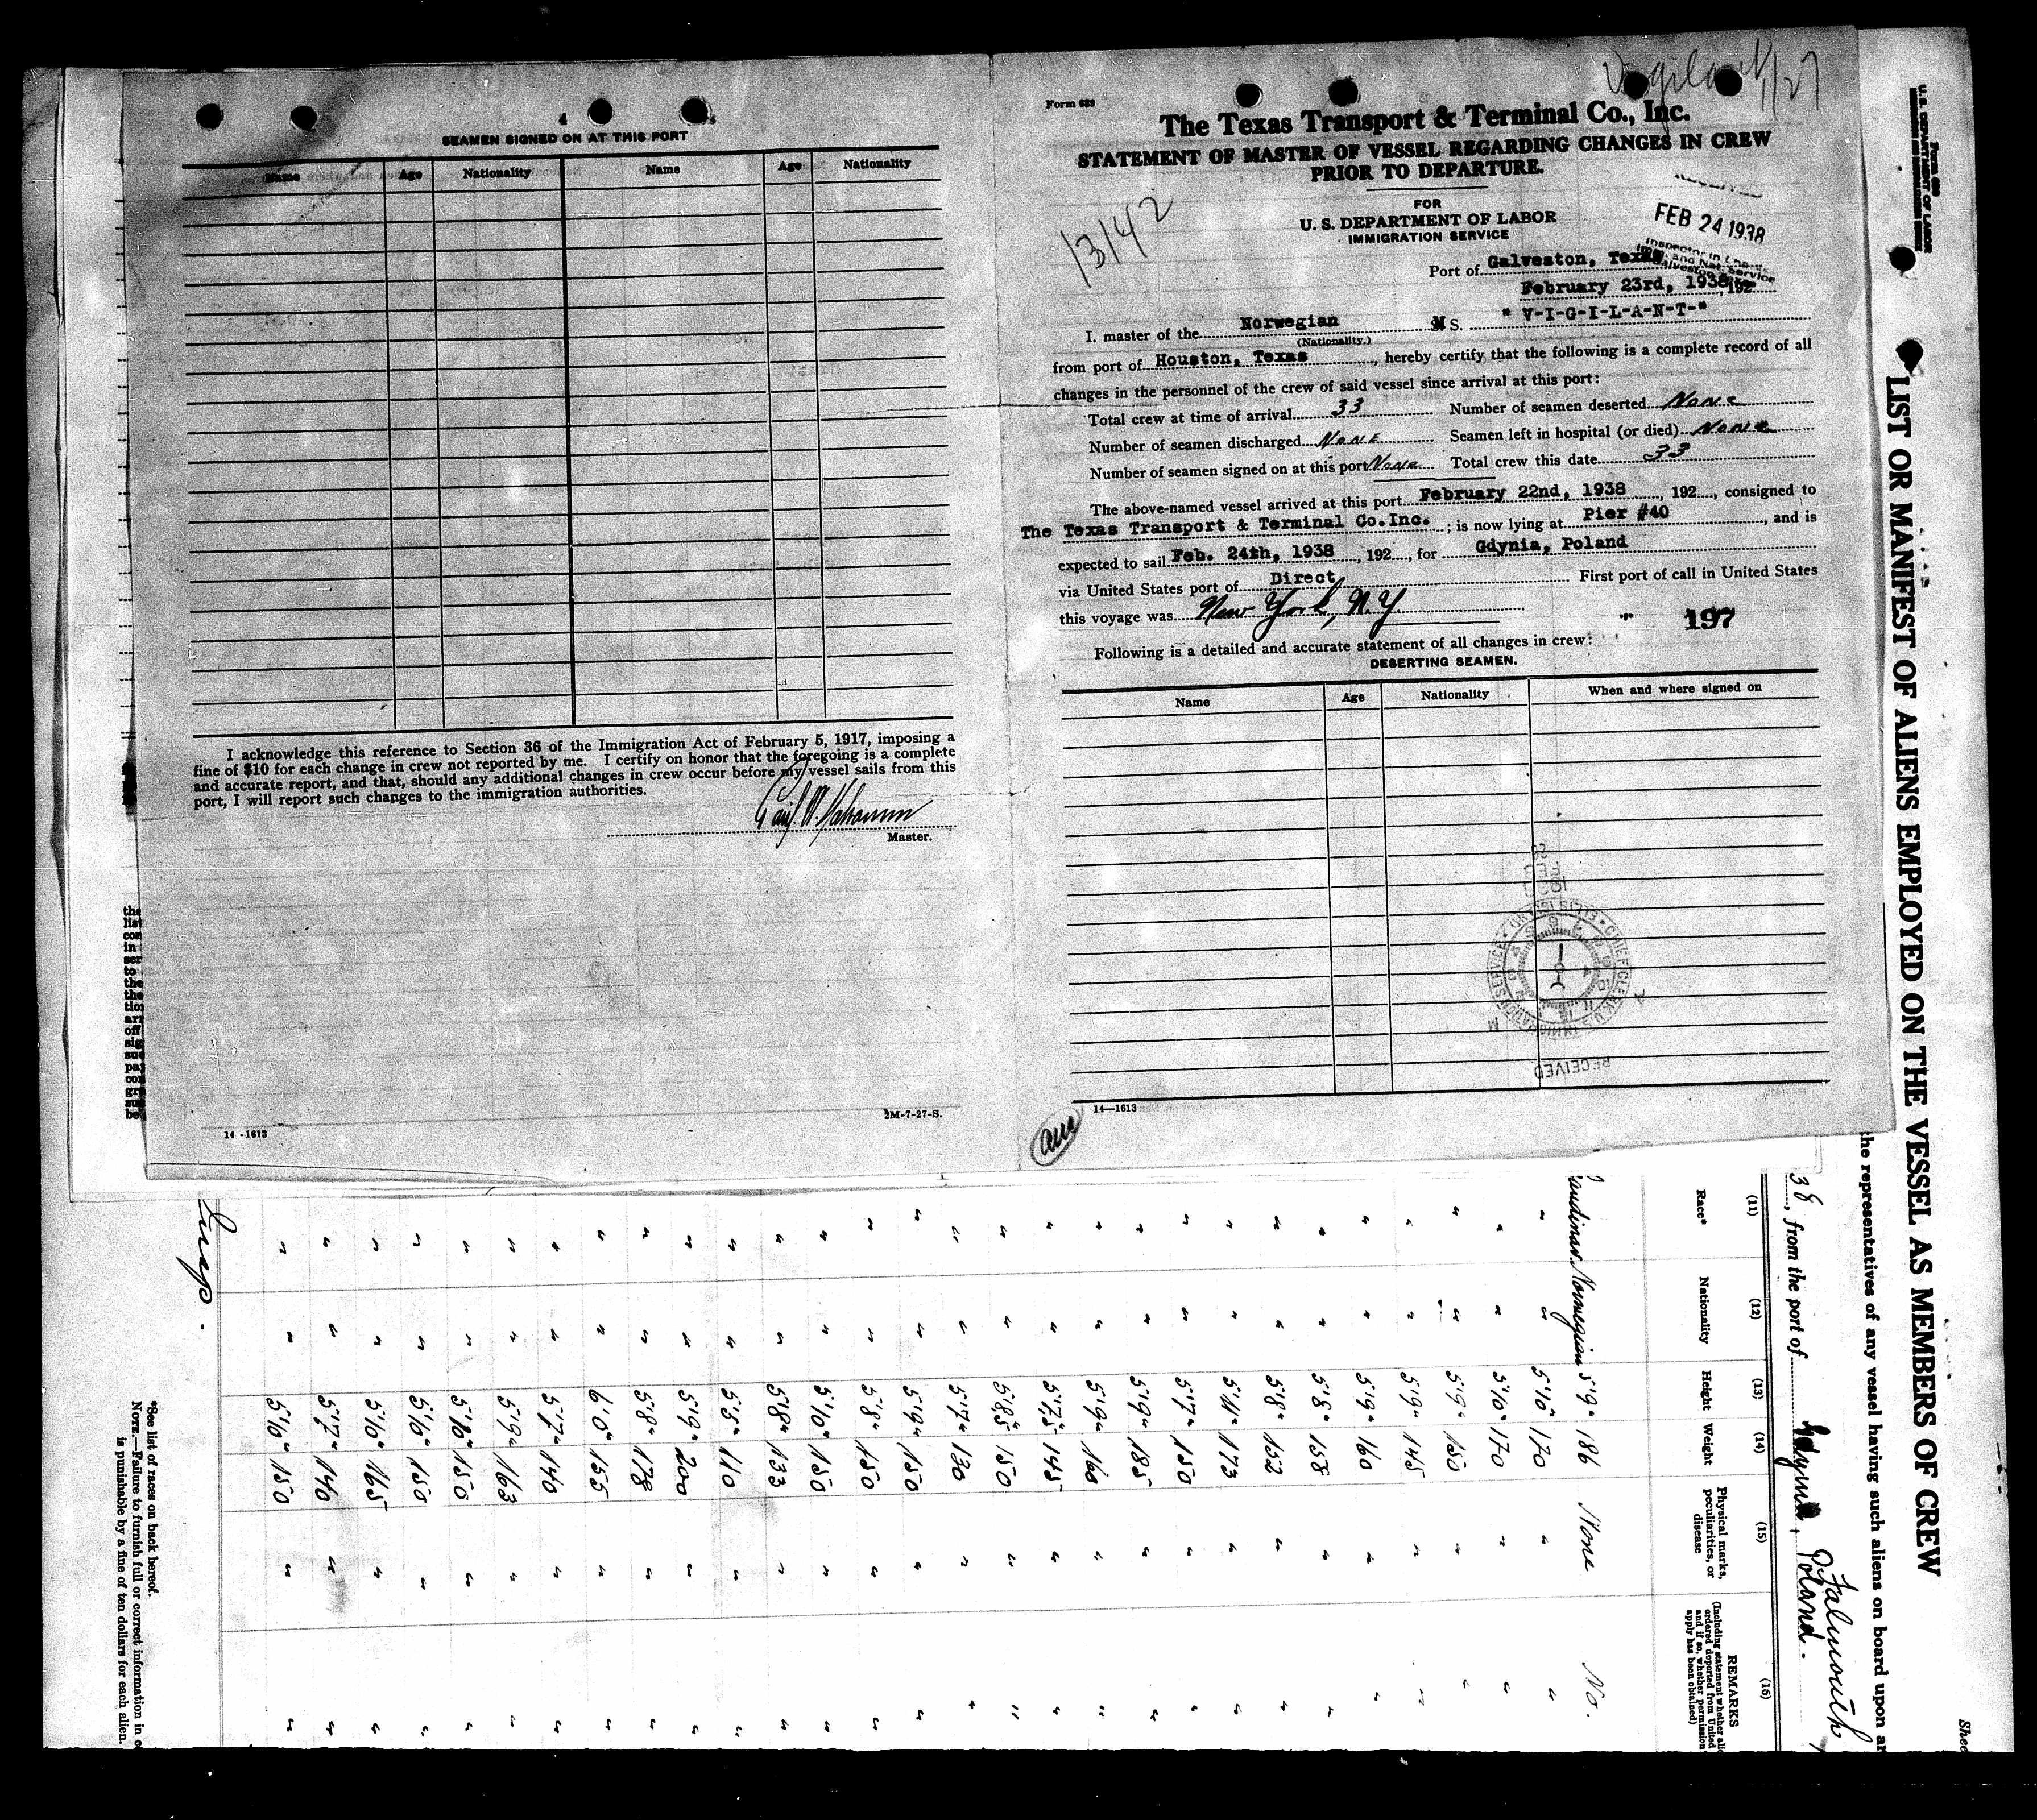 4
SEAMEN SIGNED ON AT THIS PORT
Name Age Nationality Name Age Nationality
I acknowledge this reference to Section 36 of the Immigration Act of February 5, 1917, imposing a
fine of $10 for each change in crew not reported by me. I certify on honor that the foregoing is a complete
and accurate report, and that, should any additional changes in crew occur before my vessel sails from this
port, I will report such changes to the immigration authorities.
Master.
2M-7-27-S.
14-1613
Form 689
Vigilant 1/27
The Texas Transport & Terminal Co., Inc.
STATEMENT OF MASTER OF VESSEL REGARDING CHANGES IN CREW
PRIOR TO DEPARTURE.
FOR
U. S. DEPARTMENT OF LABOR
IMMIGRATION SERVICE
13142
RECEIVED
FEB 24 1938
Inspector in Charge
Imm. and Nat. Service
Galveston
Port of Galveston, Texas
February 23rd, 1938, 192
I. master of the Norwegian M S. " V-I-G-I-L-A-N-T-"
(Nationality.)
from port of Houston, Texas, hereby certify that the following is a complete record of all
changes in the personnel of the crew of said vessel since arrival at this port:
Total crew at time of arrival 33 Number of seamen deserted None
Number of seamen discharged None Seamen left in hospital (or died) None
Number of seamen signed on at this port None Total crew this date 33
The above-named vessel arrived at this port February 22nd, 1938, 192, consigned to
The Texas Transport & Terminal Co.Inc. ; is now lying at Pier #40, and is
expected to sail Feb. 24th, 1938, 192, for Gdynia, Poland
via United States port of Direct First port of call in United States
this voyage was New York, N.Y.
197
Following is a detailed and accurate statement of all changes in crew:
DESERTING SEAMEN.
Name Age Nationality When and where signed on
CHIEF CLERK, U.S. IMMIGRATION SERVICE • ELLIS ISLAND •
RECEIVED
14—1613
U.S. DEPARTMENT OF LABOR
LIST OR MANIFEST OF ALIENS EMPLOYED ON THE VESSEL AS MEMBERS OF CREW
the representatives of any vessel having such aliens on board upon
Falmouth
38, from the port of Gdynia, Poland.
(11) (12) (13) (14) (15) (16)
Race* Nationality Height Weight Physical marks, peculiarities, or disease REMARKS
(Including statement whether
ordered deported from United
and if so, whether permission
apply has been obtained)
Scandinav. Norwegian 5'9" 186 None No.
" " 5'10" 170 " "
" " 5'10" 170 " "
" " 5'9" 150 " "
" " 5'9" 145 " "
" " 5'9" 160 " "
" " 5'8" 158 " "
" " 5'8" 152 " "
" " 5'11" 173 " "
" " 5'7" 150 " "
" " 5'9" 185 " "
" " 5'9" 160 " "
" " 5'7,5" 145 " "
" " 5'8,5" 150 " "
" " 5'7" 130 " "
" " 5'9" 150 " "
" " 5'8" 150 " "
" " 5'10" 150 " "
" " 5'8" 133 " "
" " 5'5" 110 " "
" " 5'9" 200 " "
" " 5'8" 178 " "
" " 6'0" 155 " "
" " 5'7" 140 " "
" " 5'9" 163 " "
" " 5'10" 150 " "
" " 5'10" 150 " "
" " 5'10" 165 " "
" " 5'7" 140 " "
" " 5'10" 150 " "
Insp.
*See list of races on back hereof.
NOTE.—Failure to furnish full or correct information in
is punishable by a fine of ten dollars for each alien.